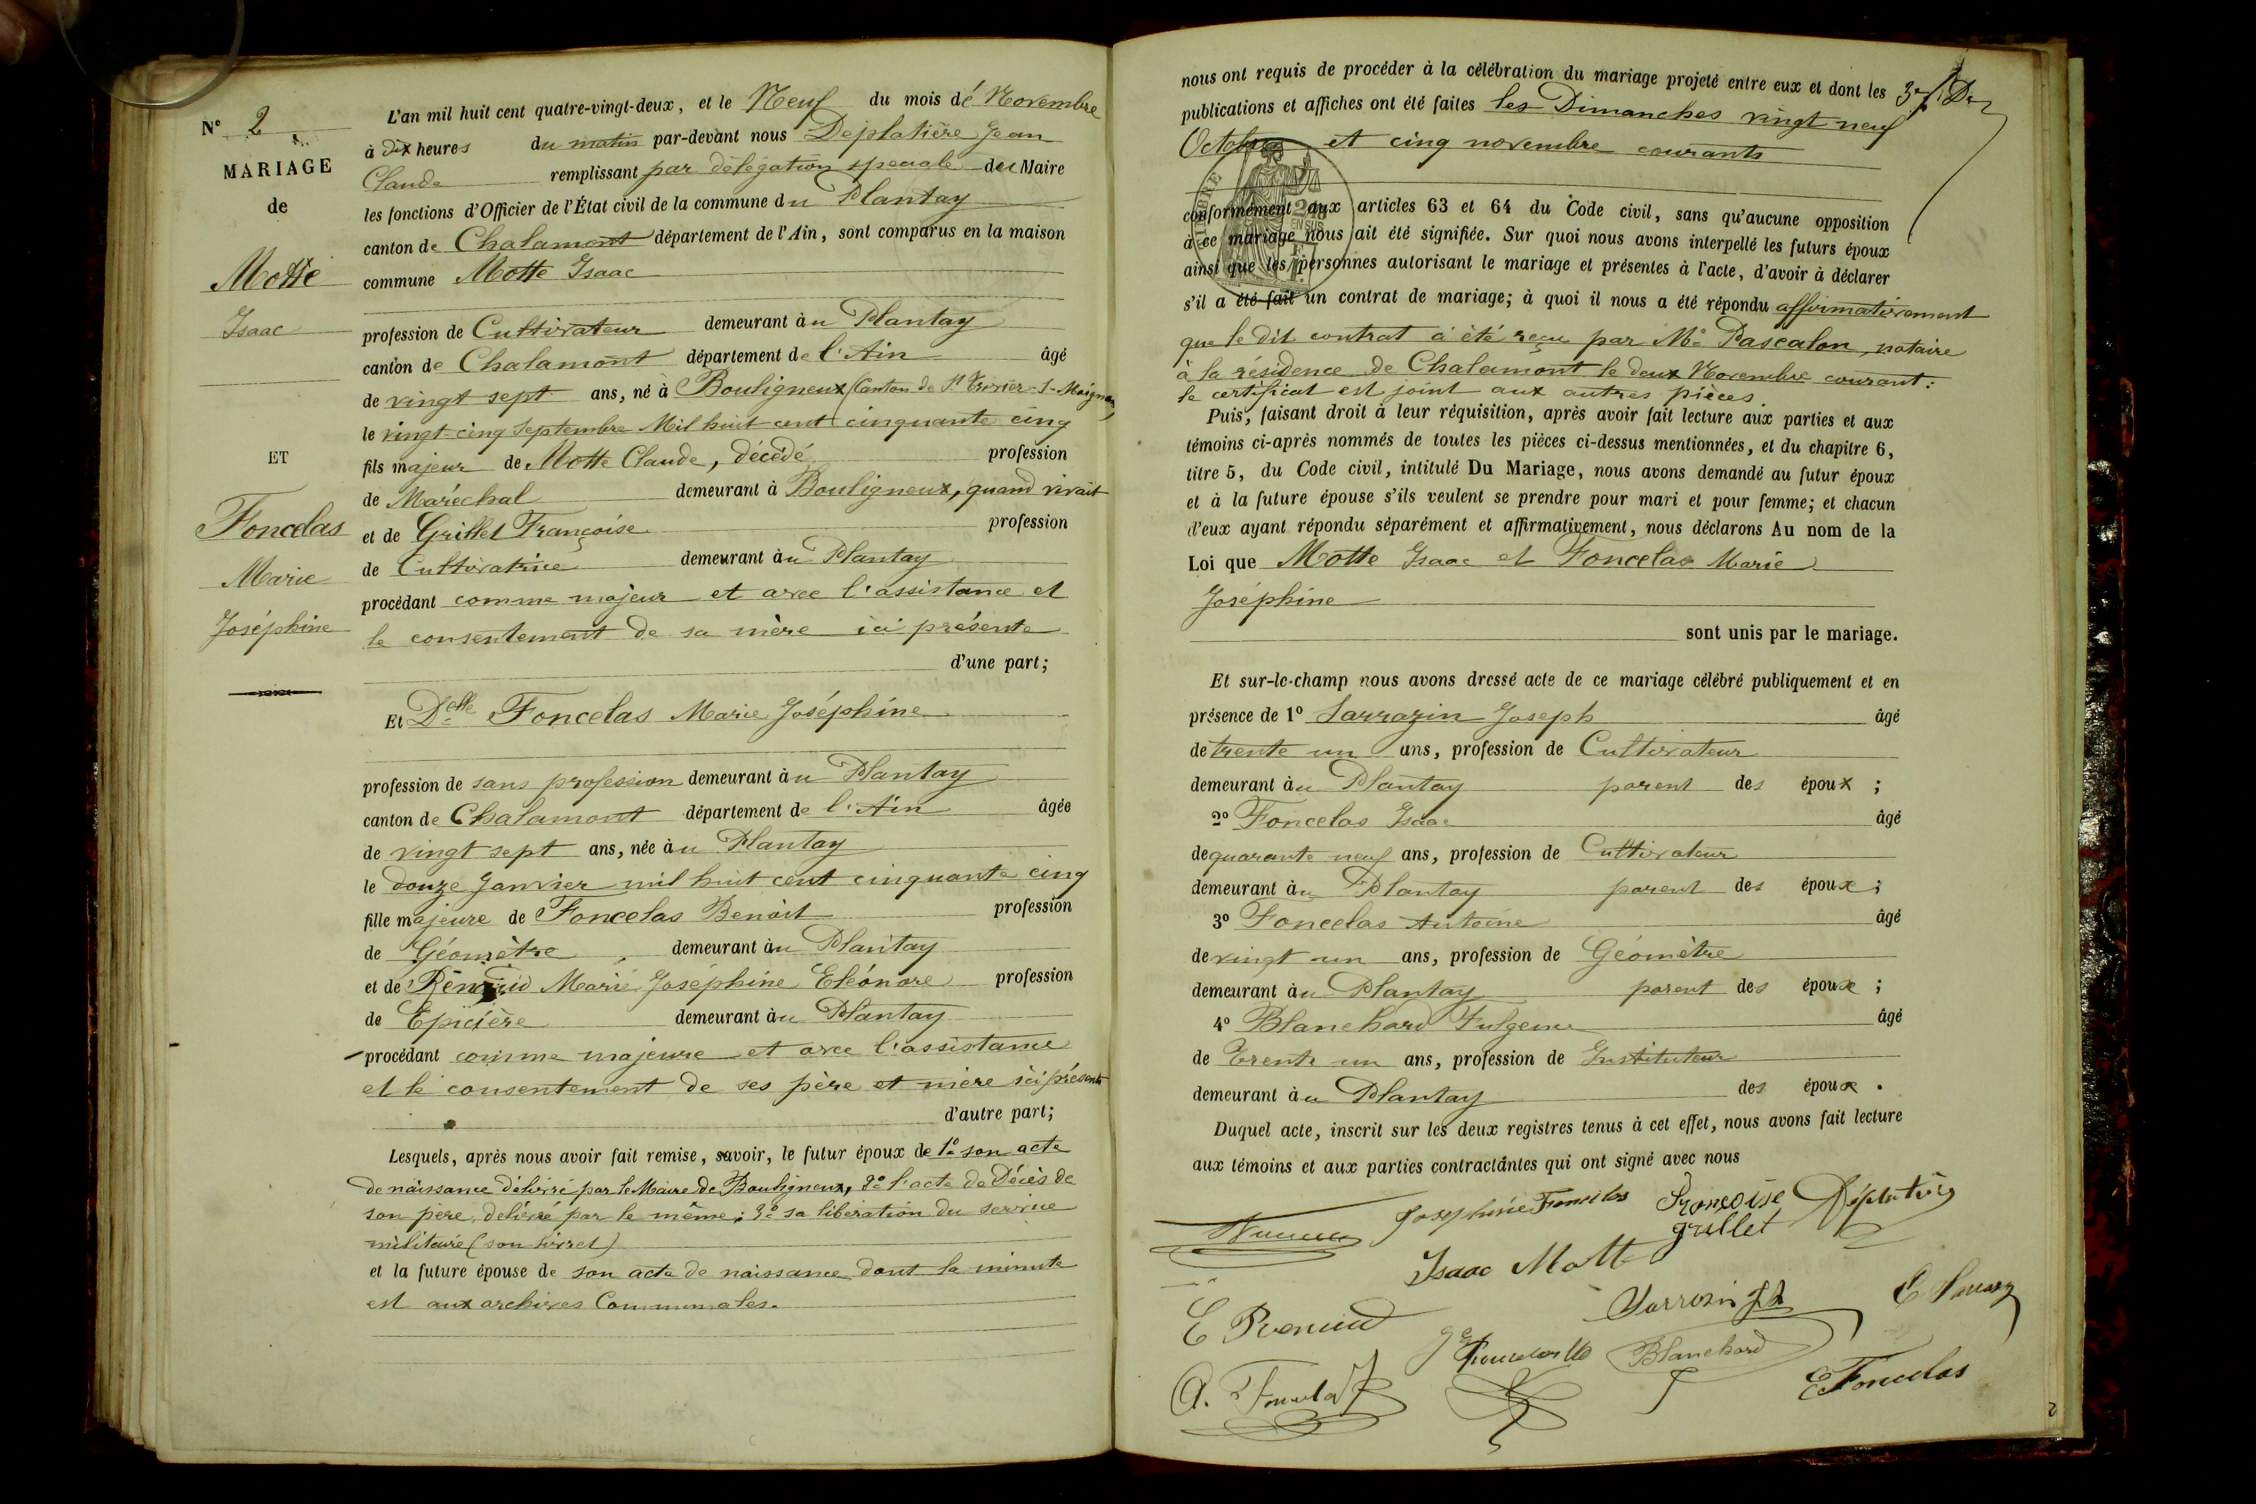 N° 2
MARIAGE
de
Motte
Isaac
ET
Foncelas
Marie
Joséphine
L'an mil huit cent quatre-vingt-deux, et le Neuf du mois de Novembre
à dix heures du matin par-devant nous Déplatière Jean
Claude remplissant par délégation speciale des Maire
les fonctions d'Officier de l'État civil de la commune du Plantay
canton de Chalamont département de l'Ain, sont comparus en la maison
commune Motte Isaac
profession de Cultivateur demeurant au Plantay
canton de Chalamont département de l'Ain âgé
de vingt sept ans, né à Bouligneux (Canton de St Trivier-s-Moignans)
le vingt-cinq Septembre Mil huit cent cinquante cinq
fils majeur de Motte Claude, décédé profession
de Maréchal demeurant à Bouligneux, quand vivait
et de Grillet Françoise profession
de Cultivatrice demeurant au Plantay
procédant comme majeur et avec l'assistance et
le consentement de sa mère ici présente
d'une part;
Et Delle Foncelas Marie Joséphine
profession de sans profession demeurant au Plantay
canton de Chalamont département de l'Ain âgée
de vingt sept ans, née au Plantay
le douze Janvier mil huit cent cinquante cinq
fille majeure de Foncelas Benoit profession
de Géomètre demeurant au Plantay
et de Marie Joséphine Eléonore profession
de Epicière demeurant au Plantay
procédant comme majeure et avec l'assistance
et le consentement de ses père et mère ici présents
d'autre part;
Lesquels, après nous avoir fait remise, savoir, le futur époux de 1° son acte
de naissance délivré par le Maire de Bouligneux, 2° l'acte de Décès de
son père, délivré par le même; 3° sa libération du service
militaire (son livret)
et la future épouse de son acte de naissance dont la minute
est aux archives Communales.
nous ont requis de procéder à la célébration du mariage projeté entre eux et dont les
publications et affiches ont été faites les Dimanches vingt neuf
Octobre et cinq novembre courants
conformément aux articles 63 et 64 du Code civil, sans qu'aucune opposition
à ce mariage nous ait été signifiée. Sur quoi nous avons interpellé les futurs époux
ainsi que les personnes autorisant le mariage et présentes à l'acte, d'avoir à déclarer
s'il a été fait un contrat de mariage; à quoi il nous a été répondu affirmativement
que le dit contrat a été reçu par Me Pascalon, notaire
à la résidence de Chalamont le deux Novembre courant:
le certificat est joint aux autres pièces.
Puis, faisant droit à leur réquisition, après avoir fait lecture aux parties et aux
témoins ci-après nommés de toutes les pièces ci-dessus mentionnées, et du chapitre 6,
titre 5, du Code civil, intitulé Du Mariage, nous avons demandé au futur époux
et à la future épouse s'ils veulent se prendre pour mari et pour femme; et chacun
d'eux ayant répondu séparément et affirmativement, nous déclarons Au nom de la
Loi que Motte Isaac et Foncelas Marie
Joséphine
sont unis par le mariage.
Et sur-le-champ nous avons dressé acte de ce mariage célébré publiquement et en
présence de 1° Sarrazin Joseph âgé
de trente un ans, profession de Cultivateur
demeurant au Plantay parent des époux ;
2° Foncelas Isaac âgé
de quarante neuf ans, profession de Cultivateur
demeurant au Plantay parent des époux ;
3° Foncelas Antoine âgé
de vingt un ans, profession de Géomètre
demeurant au Plantay parent des époux ;
4° Blanchard Fulgence âgé
de Trente un ans, profession de Instituteur
demeurant au Plantay des époux .
Duquel acte, inscrit sur les deux registres tenus à cet effet, nous avons fait lecture
aux témoins et aux parties contractantes qui ont signé avec nous
Joséphine Foncelas Françoise grillet Déplatière
Isaac Motte
Sarrazin
Blanchard
A. Foncelas
E Foncelas